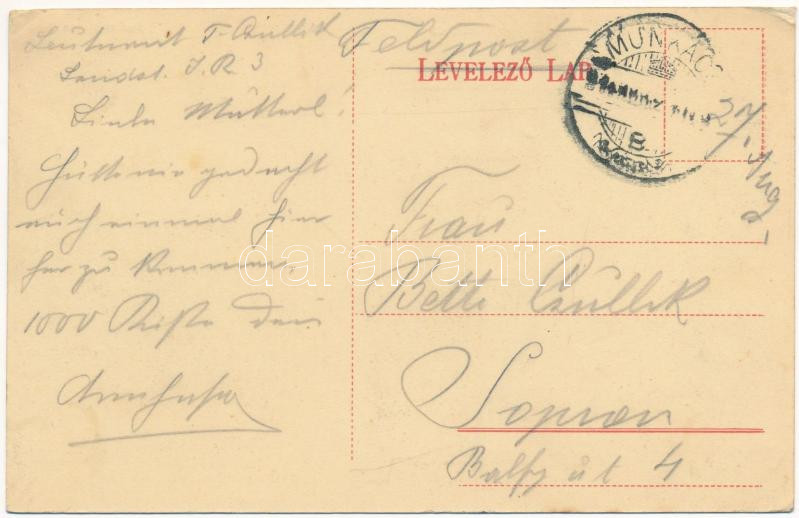 Leutnant T. Czullik
Landst. I. R. 3
Liebe Mutterl!
Hätte nie gedacht
auch einmal hier
her zu kommen.
1000 Küsse Dein
Feldpost
LEVELEZŐ LAP
MUNKÁCS
B
27. Aug.
Frau
Betti Czullik
Sopron
Balfy út 4
darabanth